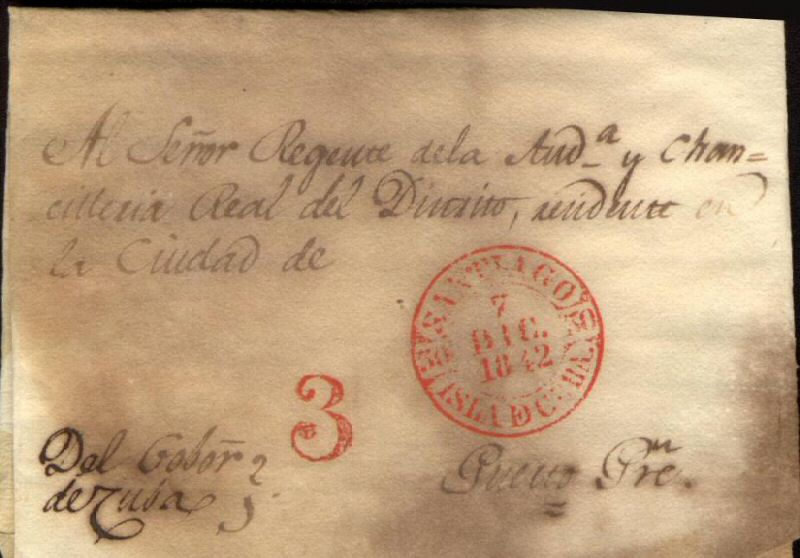 Al Señor Regente dela Aud.ª y Chan=
cilleria Real del Distrito, residente en
la Ciudad de
SANTIAGO
7
DIC.
1842
ISLA DE CUBA.
3
Del Gobor
de Cuba
Puerto Pre.